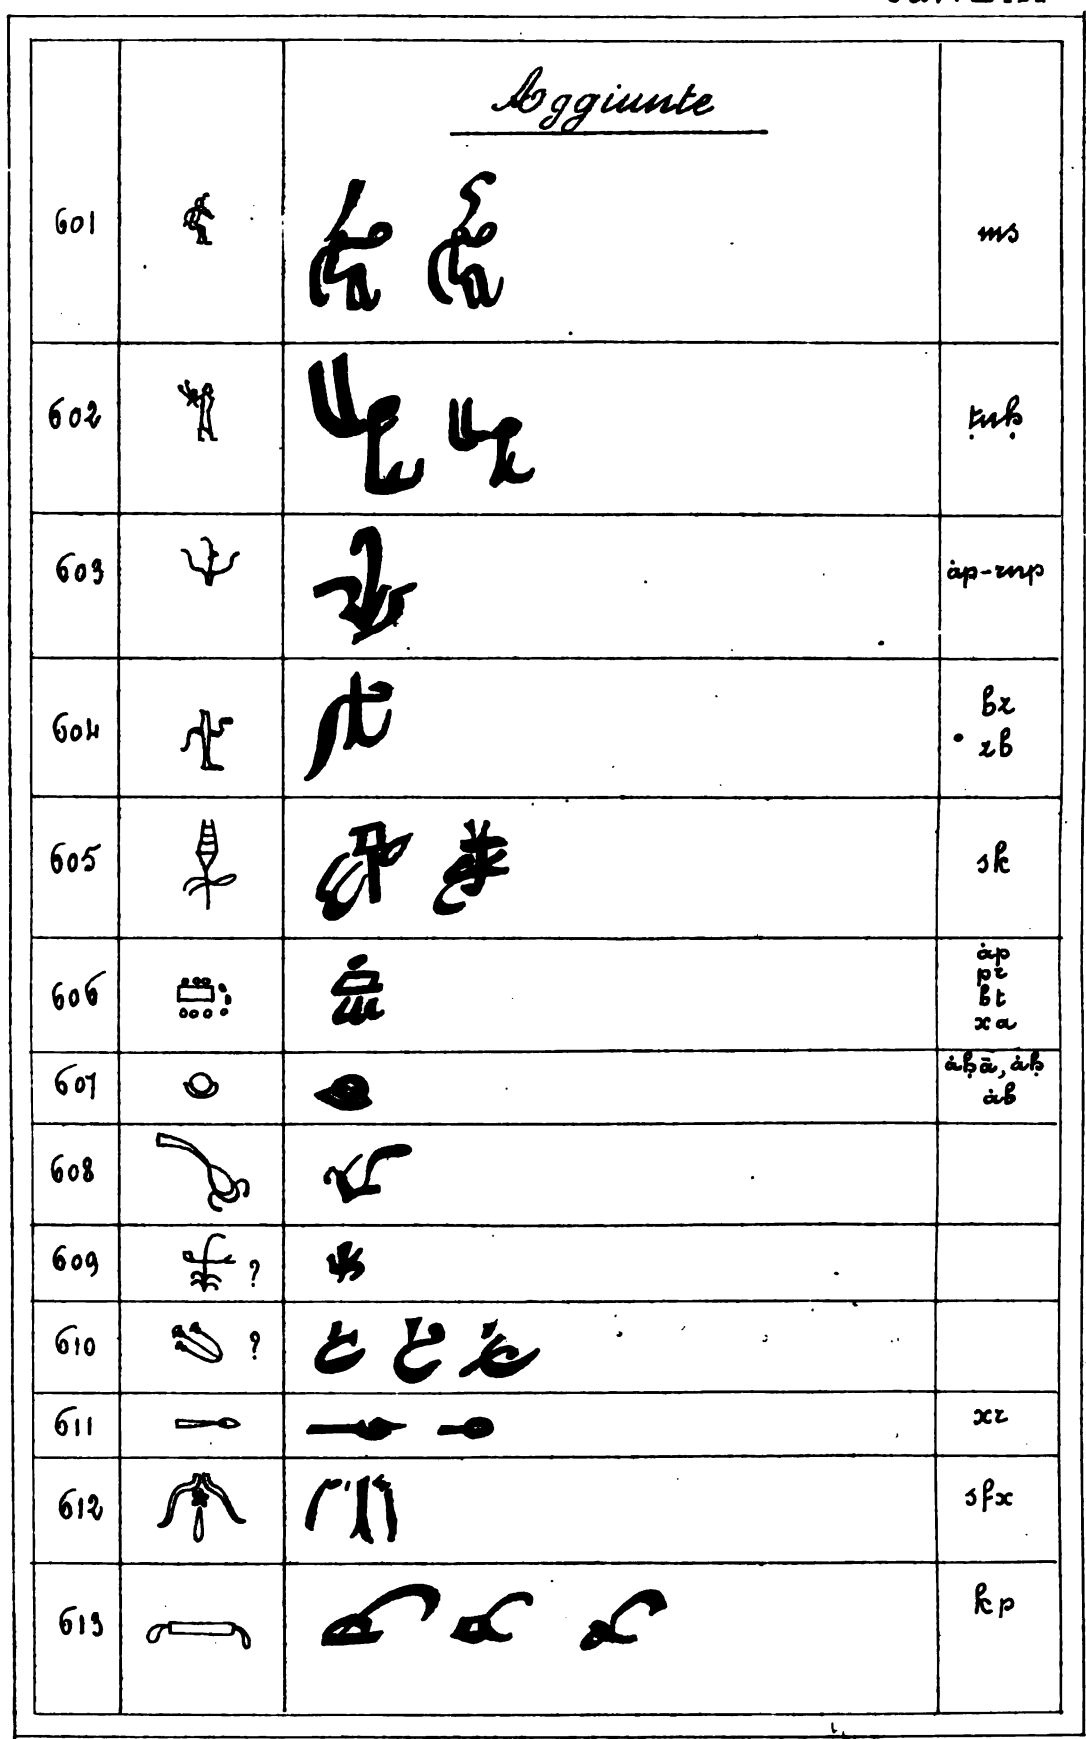 Aggiunte
601 ms
602 ṭnḥ
603 ȧp-rnp
604 br
rb
605 sk
606 ȧp
pr
bt
xa
607 ȧḥā, ȧḥ
ȧb
608
609 ?
610 ?
611 xr
612 sfx
613 kp